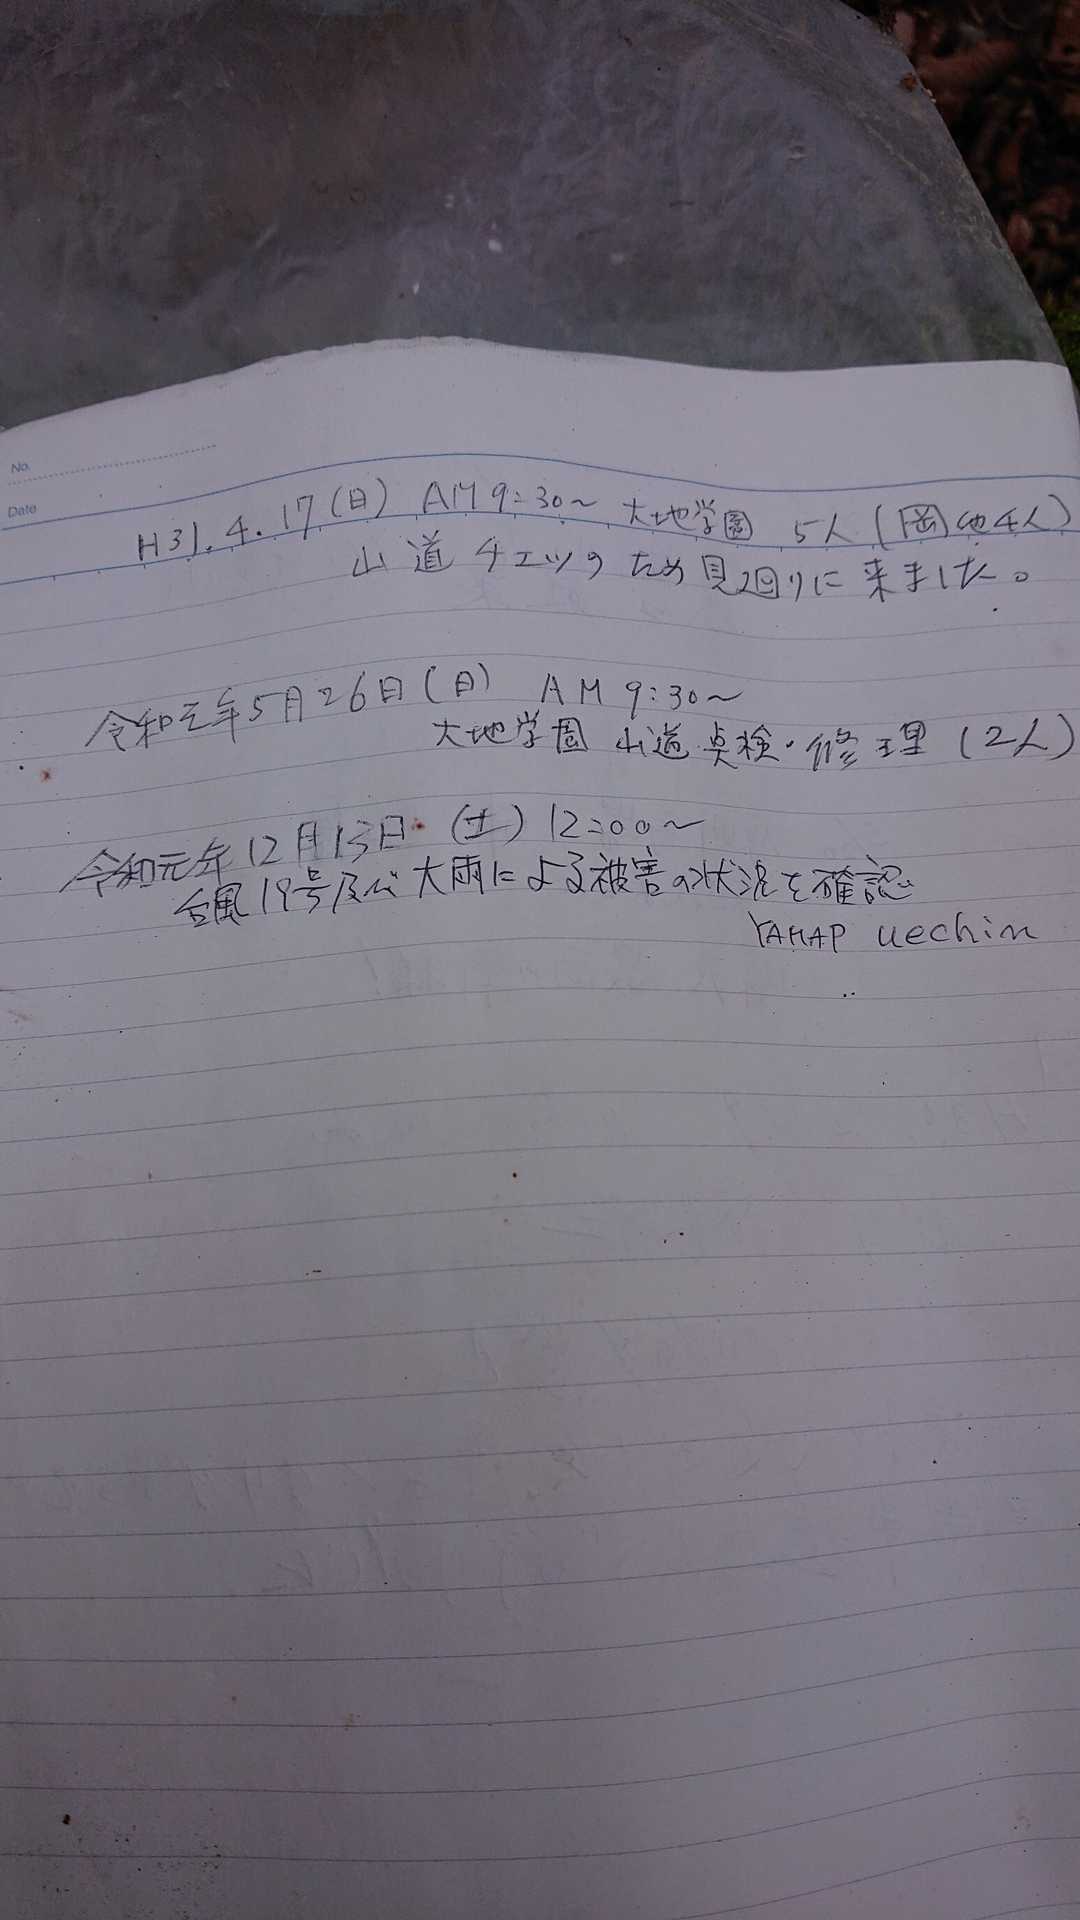 No.
Date
H31.4.17(日) AM9:30〜 大地学園 5人(岡他4人)
山道チェックのため見回りに来ました。
令和元年5月26日(日) AM 9:30〜
大地学園 山道点検・修理(2人)
令和元年12月13日(土) 12:00〜
台風19号及び大雨による被害の状況を確認
YAMAP uechin